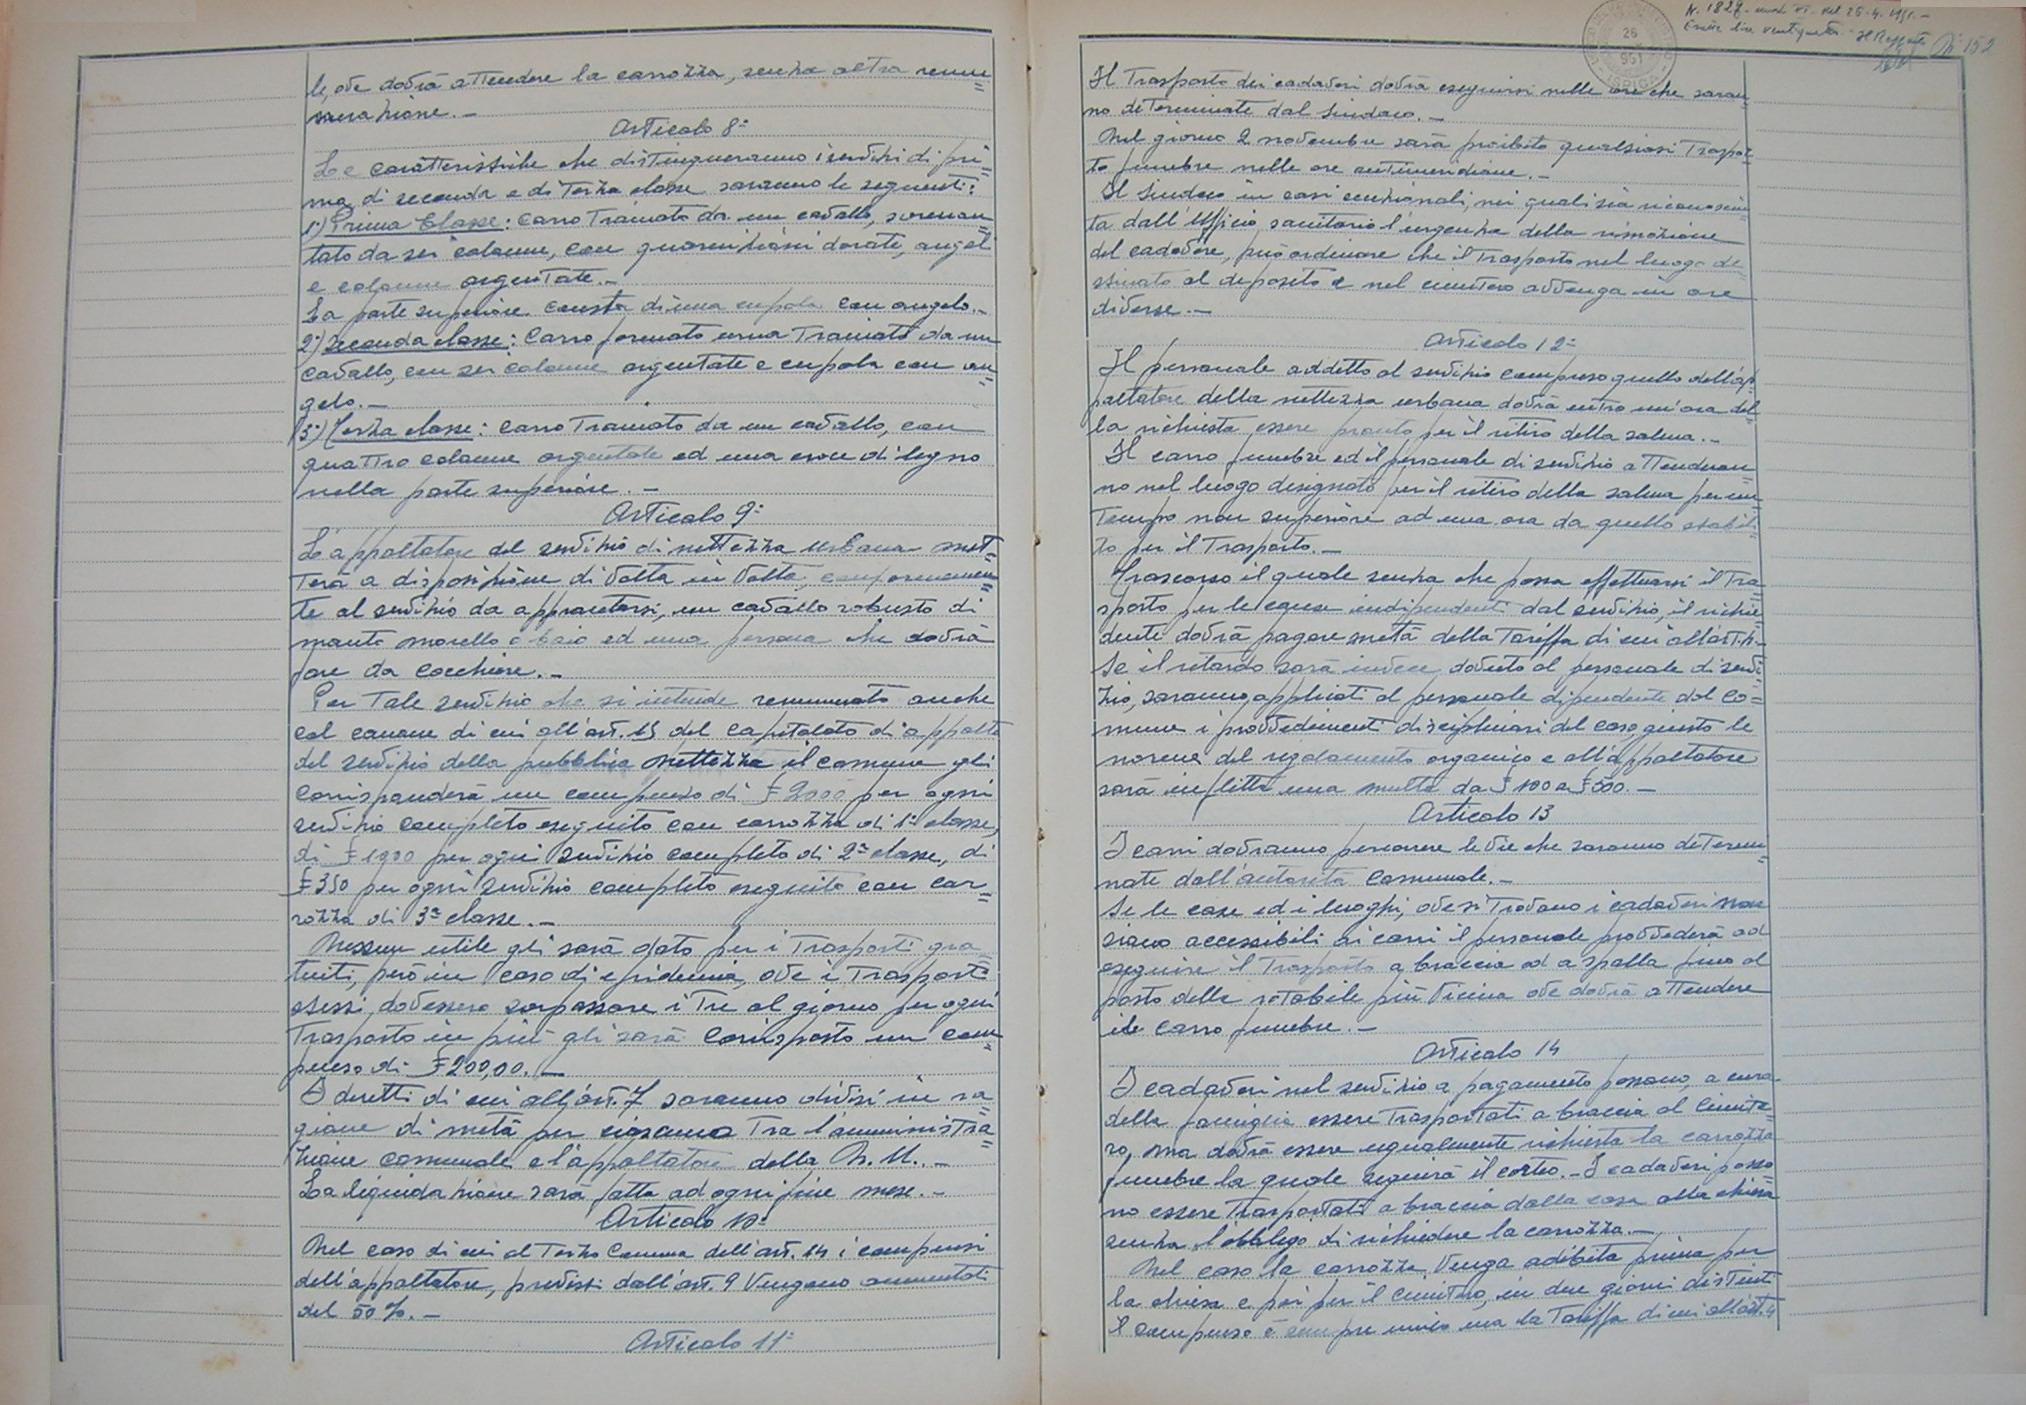 le, ove dovrà attendere la carrozza, senza altra remu=
nerazione.-
Articolo 8°
Le caratteristiche che distingueranno i servizi di pri=
ma, di seconda e di terza classe saranno le seguenti:
1°) Prima Classe: Carro trainato da un cavallo, sormon=
tato da sei colonne, con guarnizioni dorati, angeli
e colonne argentate.-
La parte superiore consta di una cupola con angelo.-
2°) Seconda classe: Carro formato urna trainato da un
cavallo, con sei colonne argentate e cupola con an=
gelo.-
3°) Terza classe: Carro trainato da un cavallo, con
quattro colonne argentate ed una croce di legno
nella parte superiore.-
Articolo 9°
L'appaltatore del servizio di nettezza urbana met=
terà a disposizione di volta in volta, conformemen=
te al servizio da apprestarsi, un cavallo robusto di
manto morello o baio ed una persona che dovrà
fare da cocchiere.-
Per tale servizio che si intende remunerato anche
col canone di cui all'art. 15 del capitolato di appalto
del servizio della pubblica nettezza il comune gli
corrisponderà un compenso di £ 2000 per ogni
servizio completo eseguito con carrozza di 1ª classe,
di £ 1900 per ogni servizio completo di 2ª classe, di
£ 350 per ogni servizio completo eseguito con car=
rozza di 3ª classe.-
Nessun utile gli sarà dato per i trasporti gra=
tuiti, però in caso di epidemia, ove i trasporti
stessi dovessero sorpassare i tre al giorno per ogni
trasporto in più gli sarà corrisposto un com=
penso di £ 200,00.-
I diritti di cui all'art. 7 saranno divisi in ra=
gione di metà per ciascuno tra l'amministra=
zione comunale e l'appaltatore della N. U..-
La liquidazione sarà fatta ad ogni fine mese.-
Articolo 10°
Nel caso di cui al terzo comma dell'art. 14 i compensi
dell'appaltatore, previsti dall'art. 9 vengono aumentati
del 50 %.-
Articolo 11°
N. 1827
26
951
ISPICA
N° 152
Il trasporto dei cadaveri dovrà eseguirsi nelle ore che saran=
no determinate dal Sindaco.-
Nel giorno 2 novembre sarà proibito qualsiasi traspor=
to funebre nelle ore antimeridiane.-
Il Sindaco in casi eccezionali, nei quali sia riconosciu=
ta dall'Ufficio sanitario l'urgenza della rimozione
del cadavere, può ordinare che il trasporto nel luogo de=
stinato al deposito e nel cimitero avvenga in ore
diverse.-
Articolo 12°
Il personale addetto al servizio compreso quello dell'ap=
paltatore della nettezza urbana dovrà entro un'ora del=
la richiesta essere pronto per il ritiro della salma.-
Il carro funebre ed il personale di servizio attenderan=
no nel luogo designato per il ritiro della salma per un
tempo non superiore ad una ora da quello stabili=
to per il trasporto.-
Trascorso il quale senza che possa effettuarsi il tra=
sporto per le cause indipendenti dal servizio, il richie=
dente dovrà pagare metà della tariffa di cui all'art. 4.-
Se il ritardo sarà invece dovuto al personale di servi=
zio, saranno applicati al personale dipendente dal Co=
mune i provvedimenti disciplinari del caso, giusto le
norme del regolamento organico e all'appaltatore
sarà inflitta una multa da £ 100 a £ 500.-
Articolo 13
I carri dovranno percorrere le vie che saranno determi=
nate dall'autorità Comunale.-
Se le case ed i luoghi, ove si trovano i cadaveri non
siano accessibili ai carri il personale provvederà ad
eseguire il trasporto a braccia od a spalla fino al
posto della rotabile più vicina ove dovrà attendere
il carro funebre.-
Articolo 14
I cadaveri nel servizio a pagamento possono, a cura
della famiglia essere trasportati a braccia al Cimite=
ro, ma dovrà essere ugualmente richiesta la carrozza
funebre la quale seguirà il corteo.- I cadaveri posso=
no essere trasportati a braccia dalla casa alla chiesa
senza l'obbligo di richiedere la carrozza.-
Nel caso la carrozza venga adibita prima per
la chiesa e poi per il Cimitero, in due giorni distinti
il compenso è sempre unico ma la tariffa di cui all'art. 4